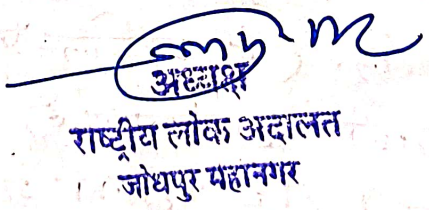 अध्यक्ष
राष्ट्रीय लोक अदालत
जोधपुर महानगर